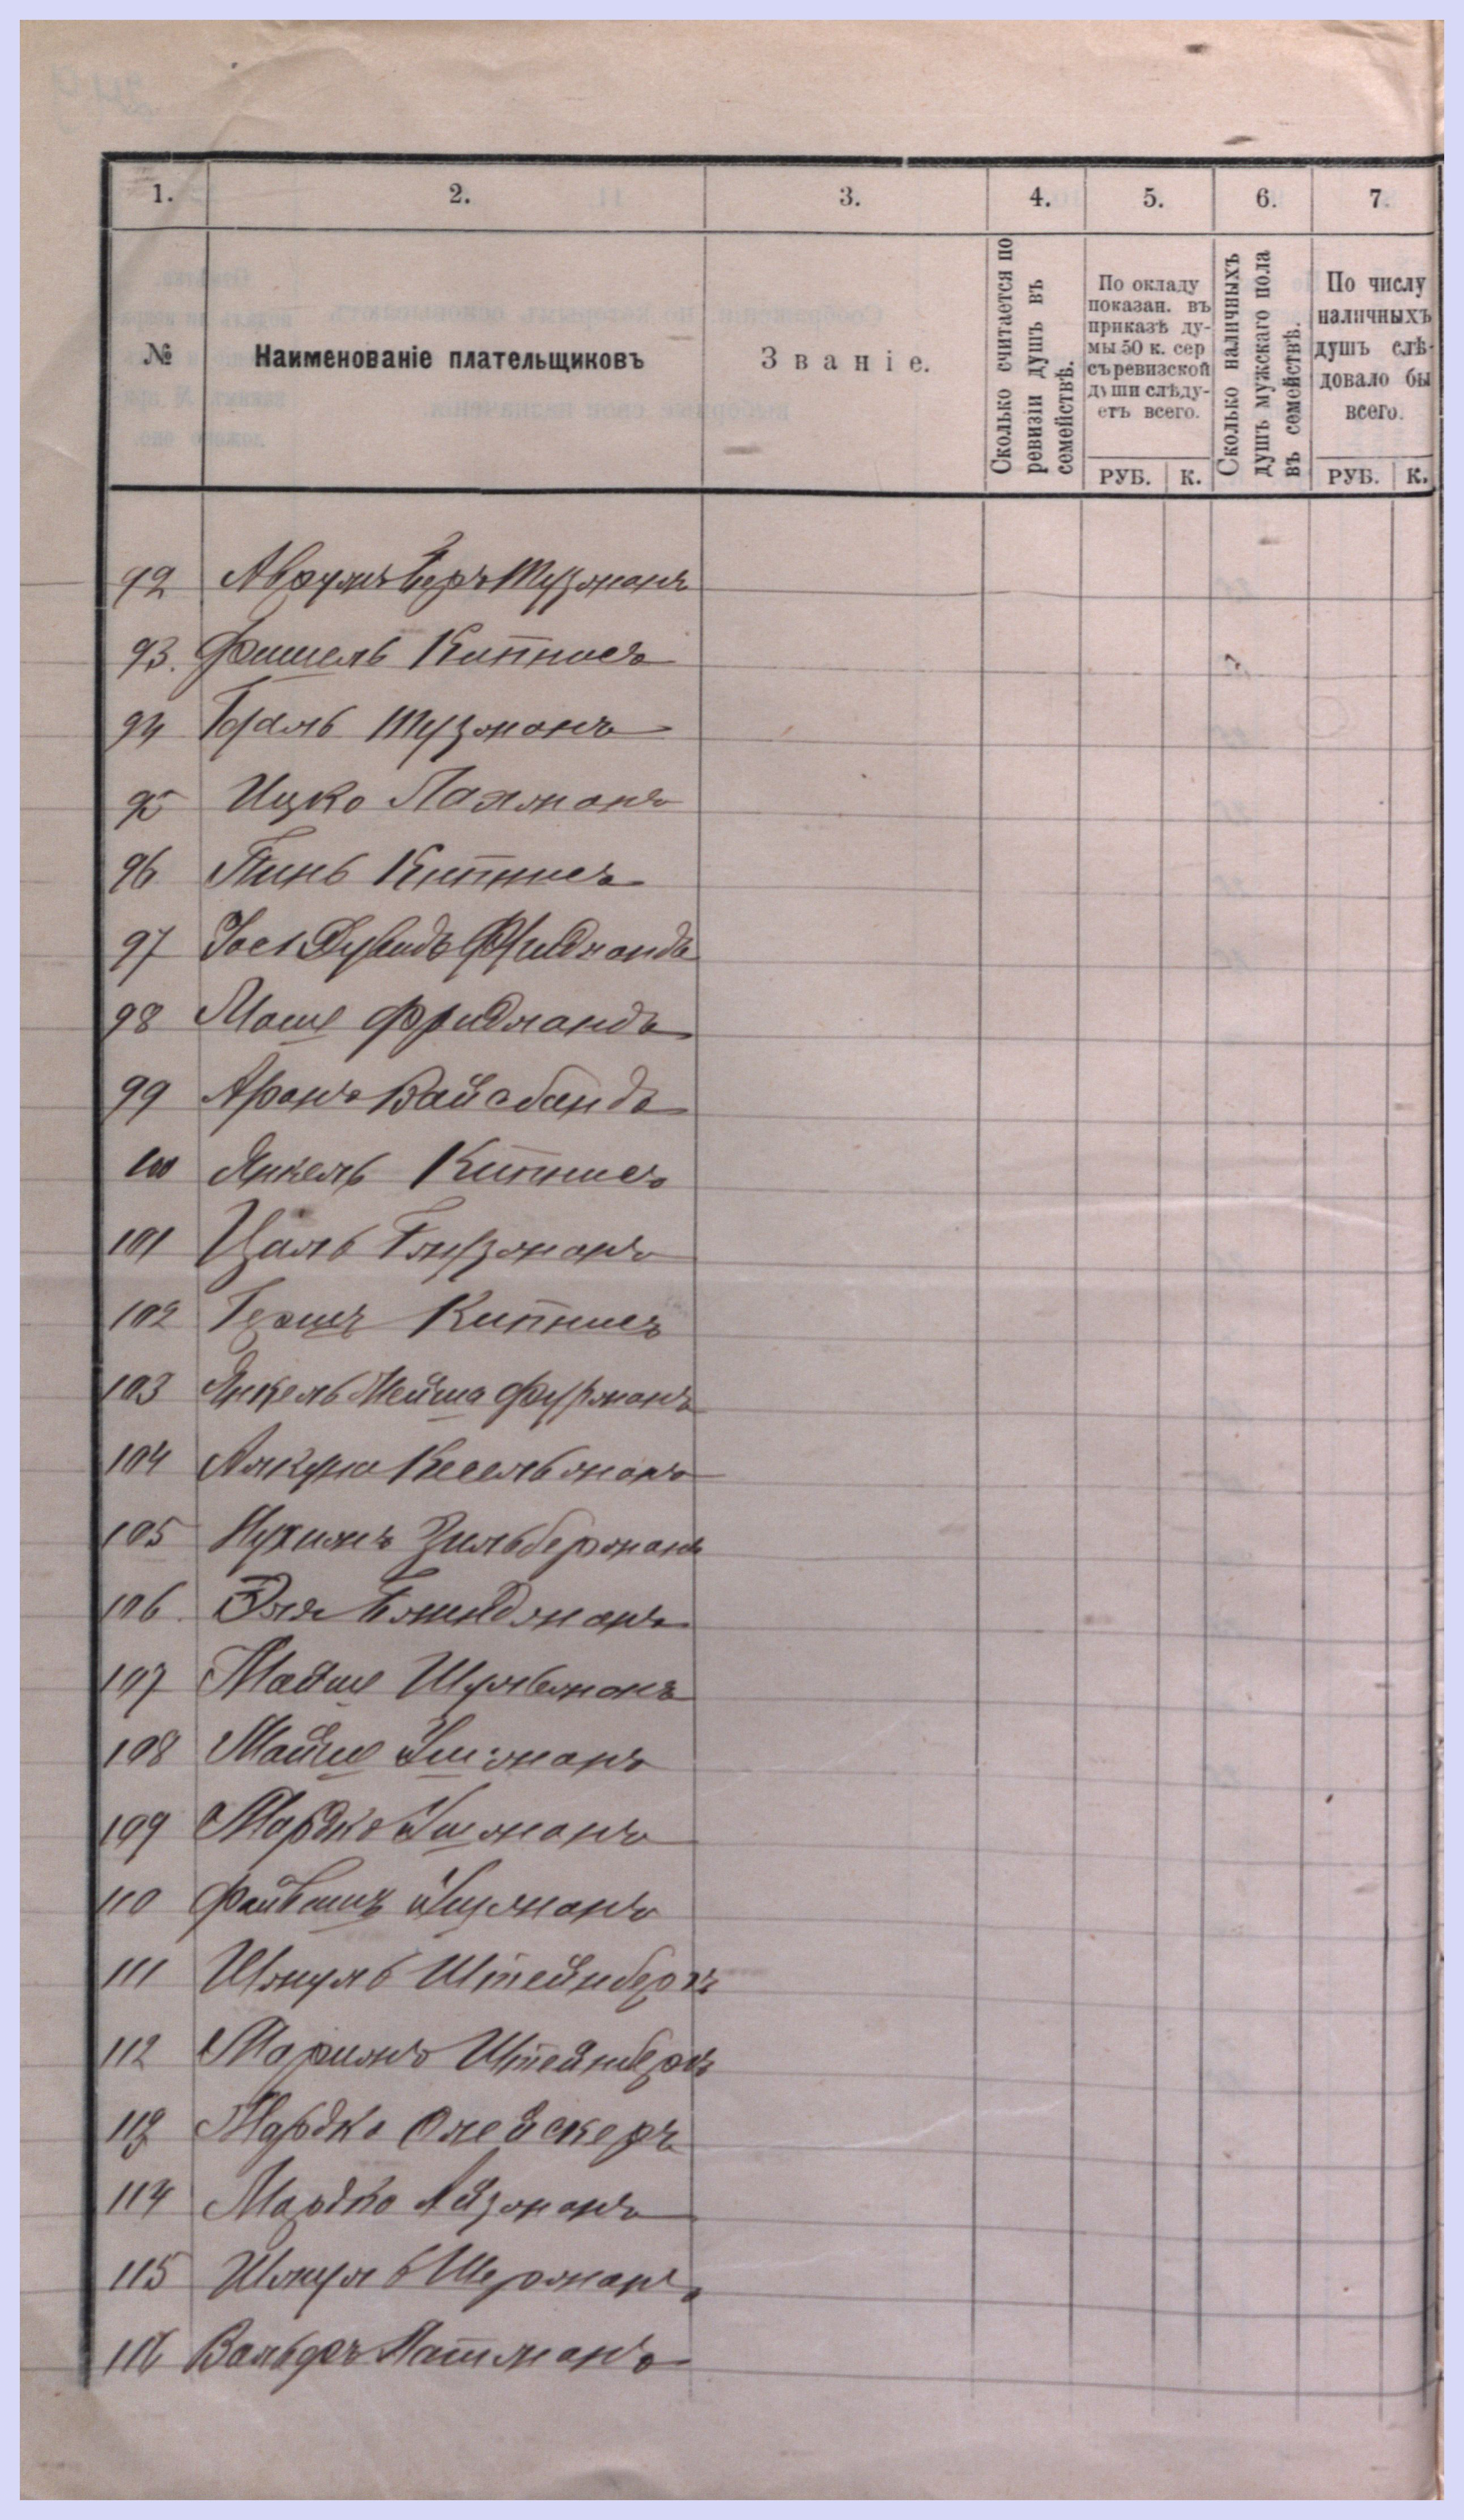 1. 2. 3. 4. 5. 6. 7.
№
Наименованіе плательщиковъ
Званіе.
Сколько считается по
ревизіи душъ въ
семействѣ.
По окладу
показан. въ
приказѣ ду-
мы 50 к. сер
съ ревизской
души слѣду-
етъ всего.
РУБ. К.
Сколько наличныхъ
душъ мужскаго пола
въ семействѣ.
По числу
наличныхъ
душъ слѣ-
довало бы
всего.
РУБ. К.
92 Аврумъ Беръ Шузманъ
93. Фишель Кипнисъ
94 Шузманъ
95 Ицко Лахманъ
96 Пинь Кипнисъ
97 Дувидъ Фридландъ
98 Моше Фридландъ
99 Аронъ Вайсбандъ
100 Янкель Кипнисъ
101 Цаль Глузманъ
102 Гершъ Кипнисъ
103 Янкель Мейша Фурманъ
104 Весельманъ
105 Нухимъ Зильберманъ
106. Эля
107 Мойше Шульманъ
108 Мойше Ушманъ
109 Мордко Ушманъ
110 Файвишъ Ушманъ
111 Шмуль Штейнбергъ
112 Штейнбергъ
113 Мордко Олейскеръ
114 Мордко Айзманъ
115 Шмуль Шерманъ
116 Вольфъ